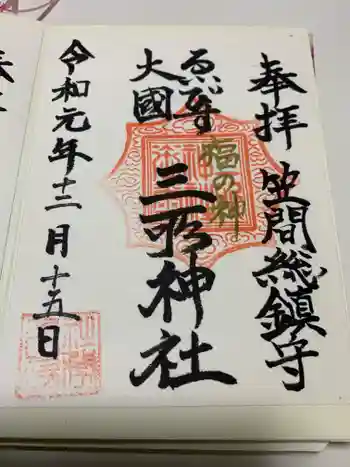 奉拝 笠間総鎮守
ゑび寿
大國
福の神
三所神社
令和元年十二月十五日